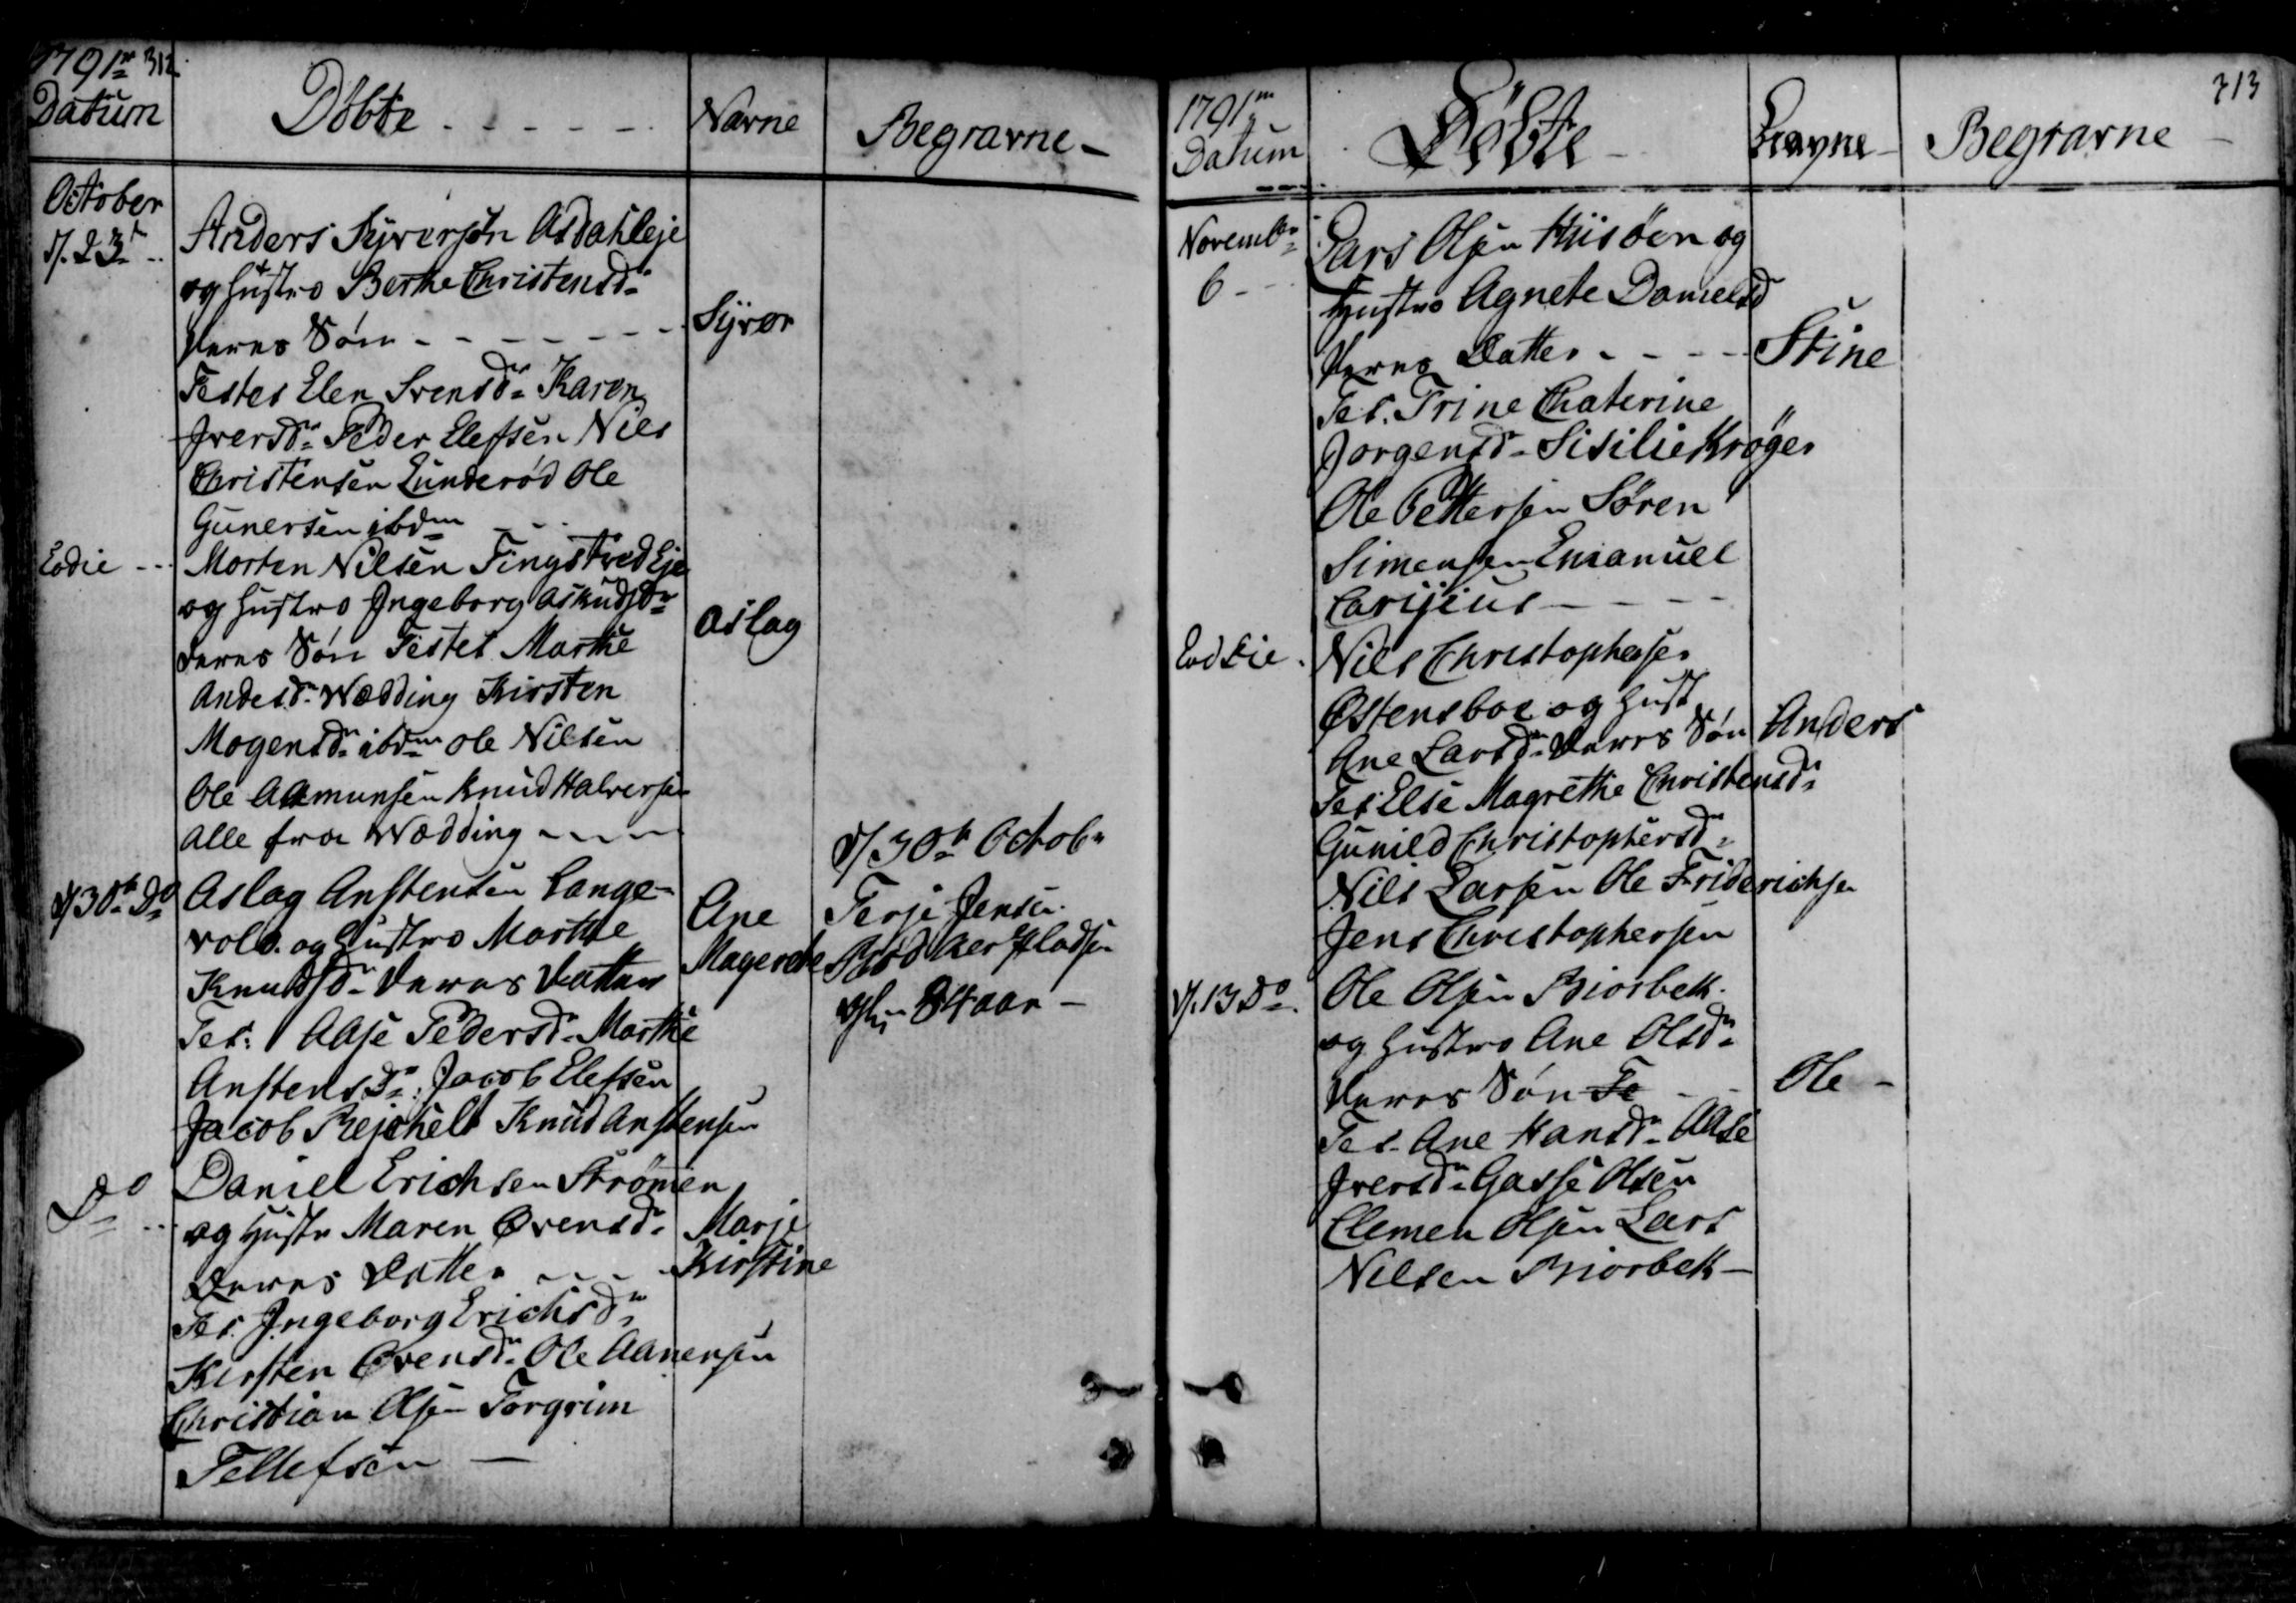 1791 312
Datum
Döbte
Navne
Begravne
October
d. 23
Anders Syversøn Asdahleje
og Hustro Berthe Christensd
deres Søn
Syver
Testes Elen Svensd Karen
Iversd Peder Elefsen Niels
Christensen Lunderöd Ole
Gunersen ibdm
Eodie
Morten Nilsen Tingstved Eje
og Hustro Ingeborg
deres Søn Testes Marthe
Aslag
Andesd Nædding Kirsten
Mogensd ibdm Ole Nilsen
Ole Aamunsen Knud Halversen
Alle fra Nædding
d 30 Do
Aslag Anstensen Lange-
vold og Hustro Marthe
Knudsd Deres Datter
Ane
Magerete
Tes: Aase Pedersd Marthe
Anstensd: Jacob Elefsen
Jacob Reichelt Knud Anstensen
d/30 Octobr
Terje Jensen
84 aar
Do
Daniel Erichsen Strømen
og Hustr Maren Ovensd
Deres Datter
Marje
Kirstine
Tes. Ingeborg Erichsd
Kirsten Ovensd Ole Aanensen
Christian Olsen Torgrim
Tellefsen
313
1791
Datum
Döbte
Navne
Begravne
Novembr
6
Lars Olsen Hiisöen og
Hustro Agnete Danielsd
deres Datter
Stine
Tes. Trine Chaterine
Jorgensd Sisilie Krøger
Ole Pettersen Sören
Simensen Emanuel
Eodie
Nils Christophersen
Østensboe og Hust
Ane Larsd Deres Søn
Anders
Tes Else Magrethe Christensd
Gunild Christophersd
Nils Larsen Ole Friderichsen
Jens Christophersen
d. 13 Do
Ole Olsen Biorbek
og Hustro Ane Olsd
Deres Søn Te
Ole
Tes. Ane Hansd Aase
Iversd Gasse Olsen
Clemen Olsen Lars
Nilsen Biorbek